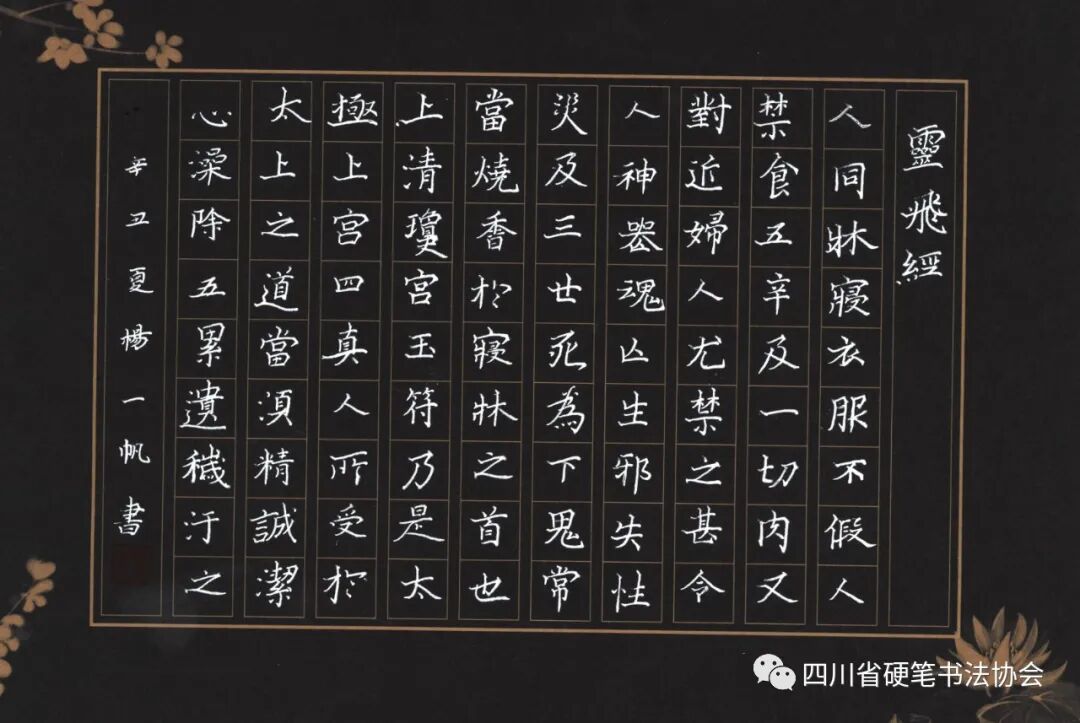 靈飛經
人同牀寢衣服不假人
禁食五辛及一切肉又
對近婦人尤禁之甚令
人神器魂亾生邪失性
災及三世死為下鬼常
當燒香於寢牀之首也
上清瓊宮玉符乃是太
極上宮四真人所受於
太上之道當湏精誠潔
心澡除五累遺穢汙之
辛丑夏楊一帆書
四川省硬笔书法协会